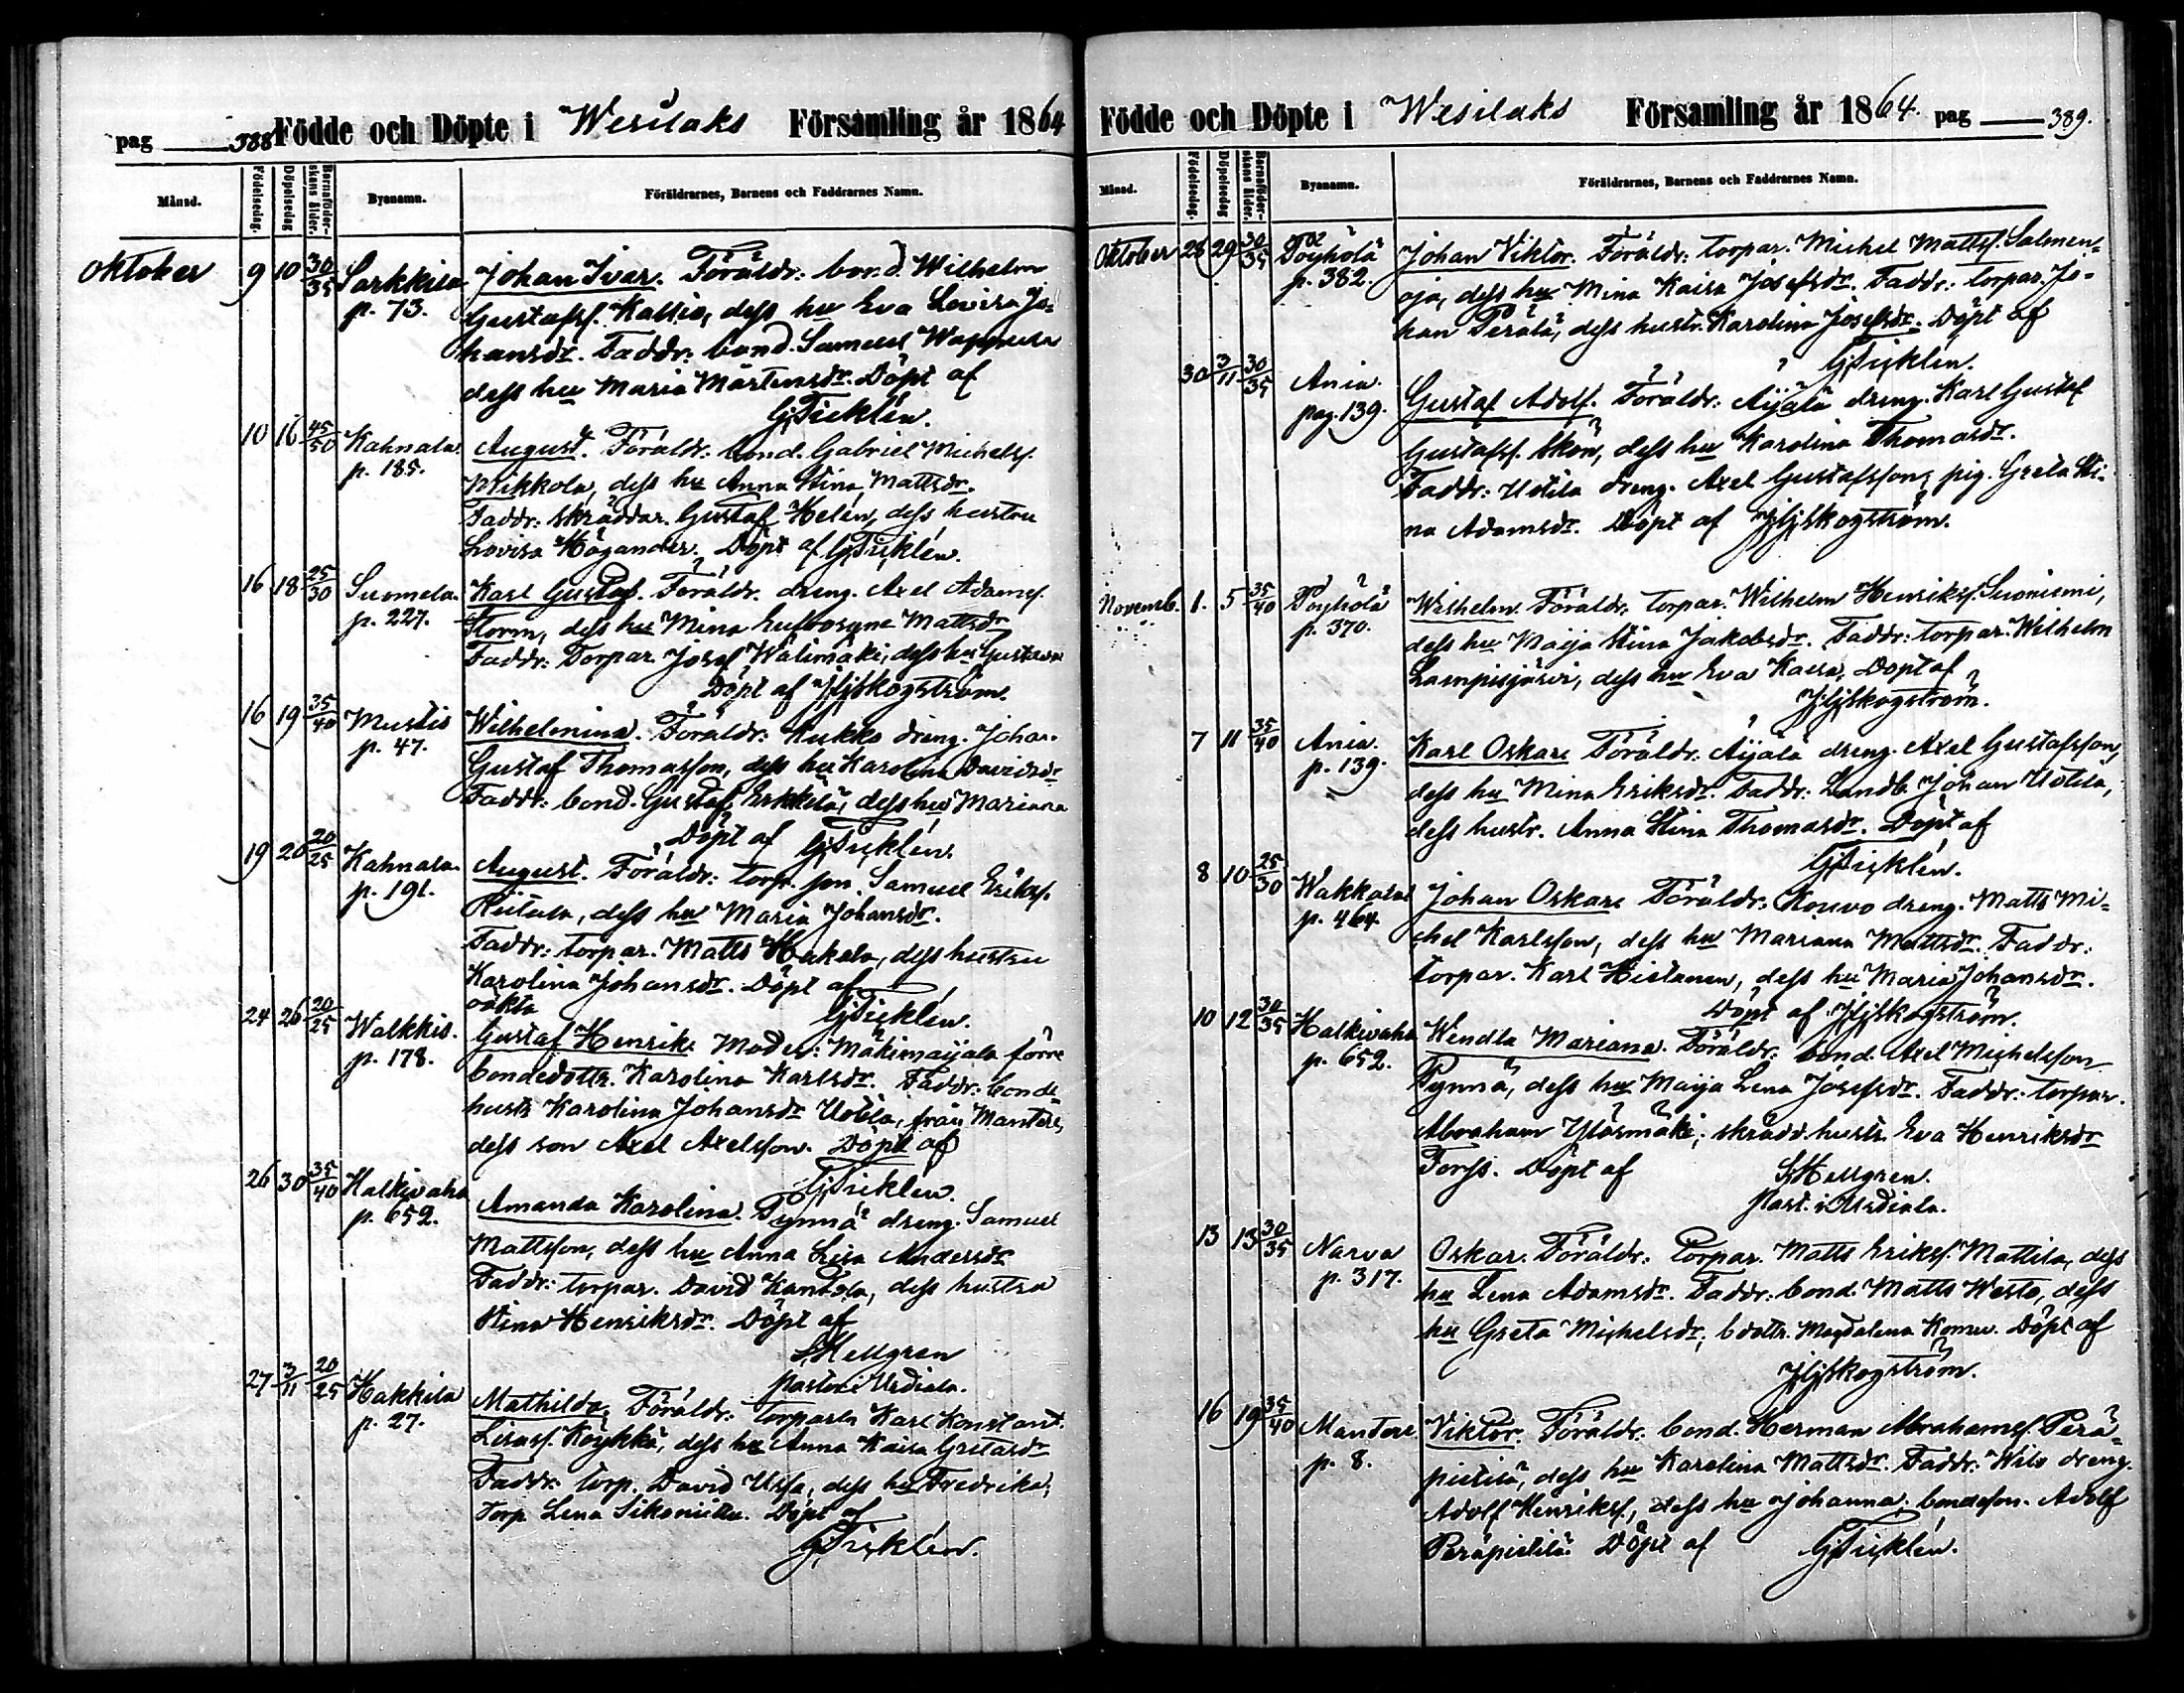 pag 388 Födde och Döpte i Wesilaks Församling år 1864
Månad. Födelsedag. Döpelsedag Barnaföderskans ålder. Byanamn. Föräldrarnes, Barnens och Faddrarnes Namn.
Oktober 9 10 30/35 Sarkkila Johan Ivar. Föräldr: bond. Wilhelm
p. 73. Gustafss. Kallio, dess hu Eva Lovisa Jo-
hansdr. Faddr: bond. Samuel
dess hu Maria Mårtensdr. Döpt af
GTicklén.
10 16 45/50 Kahnala August. Föräldr: bond. Gabriel Michelss.
p. 185. Mikkola, dess hu Anna Stina Mattsdr.
Faddr: skräddar. Gustaf Helén, dess hustru
Lovisa Högander. Döpt af GTicklén.
16 18 25/30 Suomela. Karl Gustaf. Föräldr: dreng. Axel Adamss.
p. 227. Storm, dess hu Mina Eufrosyne Mattsdr
Faddr: Torpar. Josef Wälimäki, dess hu Gustava
Döpt af JGSkogström.
16 19 35/40 Mustis Wilhelmina. Föräldr: Kukko dreng. Johan
p. 47. Gustaf Thomasson, dess hu Karolina Davidsdr
Faddr: bond. Gustaf Erkkilä, dess hu Mariana
Döpt af GTicklén.
19 20 20/25 Kahnala. August. Föräldr: torp. son Samuel Erikss.
p. 191. dess hu Maria Johansdr.
Faddr: torpar. Matts Hakala, dess hustru
Karolina Johansdr. Döpt af
GTicklén.
oäkta
24 26 20/25 Walkkis. Gustaf Henrik. Moder: Mäkimaijala förre
p. 178. bondedottr. Karolina Karlsdr. Faddr: bonde-
hustr Karolina Johansdr Uotila, från Mantere,
dess son Axel Axelsson. Döpt af
GTicklén.
26 30 35/40 Halkivaha Amanda Karolina. Pynnä dreng. Samuel
p. 652. Mattsson, dess hu Anna Lisa Andersdr
Faddr: torpar. David Kantola, dess hustru
Stina Henriksdr. Döpt af
Hellgren
Pastor i Urdiala.
27 3/11 20/25 Hakkila Mathilda. Föräldr: Torparen Karl Konstant.
p. 27. Lisass. Köykkä, dess hu Anna Kaisa Gretasdr
Faddr: torp. David dess hu Fredrika;
Torp. Lena Döpt af
GTicklén.
Födde och Döpte i Wesilaks Församling år 1864. pag 389.
Månad. Födelsedag. Döpelsedag Barnaföderskans ålder. Byanamn. Föräldrarnes, Barnens och Faddrarnes Namn.
Oktober 28 29 30/35 Pöyhölä Johan Viktor. Föräldr: torpar. Michel Mattss. Salmen-
p. 382. oja, dess hu Mina Kaisa Josefsdr. Faddr: torpar. Jo-
han Perälä, dess hustr. Karolina Josefsdr. Döpt af
GTicklén.
30 3/11 30/35 Ania. Gustaf Adolf. Föräldr: Äijälä dreng. Karl Gustaf
pag. 139. Gustafss. Skön, dess hu Karolina Thomasdr.
Faddr: Uotila dreng. Axel Gustafsson, pig. Greta Sti-
na Adamsdr. Döpt af JGSkogström.
Novemb. 1. 5 35/40 Pöyhölä Wilhelm. Föräldr. torpar. Wilhelm Henrikss. Suoniemi,
p. 370. dess hu Maija Stina Jakobsdr. Faddr: torpar. Wilhelm
Lampisjärvi, dess hu Eva Kaisa. Döpt af
JGSkogström.
7 11 35/40 Ania. Karl Oskar. Föräldr. Äijälä dreng. Axel Gustafsson,
p. 139. dess hu Mina Eriksdr. Faddr: Landb. Johan Uotila,
dess hustr. Anna Stina Thomasdr. Döpt af
GTicklén.
8 10 25/30 Wakkala Johan Oskar. Föräldr. Kouvo dreng. Matts Mi-
p. 464 chel Karlsson, dess hu Mariana Mattsdr. Faddr:
torpar. Karl Hietanen, dess hu Maria Johansdr.
Döpt af JGSkogström.
10 12 30/35 Halkivaha Wendla Mariana. Föräldr: bond. Axel Michelsson
p. 652. Pynnä, dess hu Maija Lena Josefsdr. Faddr: torpar.
Abraham Ylösmäki; skrädd. hustr. Eva Henriksdr
Forss. Döpt af Hellgren.
Past. i Urdiala.
13 13 30/35 Narva Oskar. Föräldr: Torpar. Matts Erikss. Mattila, dess
p. 317. hu Lena Adamsdr. Faddr: bond. Matts Westo, dess
hu Greta Michelsdr; bdottr. Magdalena Döpt af
JGSkogström.
16 19 35/40 Mantere Viktor. Föräldr. bond. Herman Abrahamss. Perä-
p. 8. pietilä, dess hu Karolina Mattsdr. Faddr: dreng.
Adolf Henrikss., dess hu Johanna; bondeson. Adolf
Peräpietilä. Döpt af GTicklén.